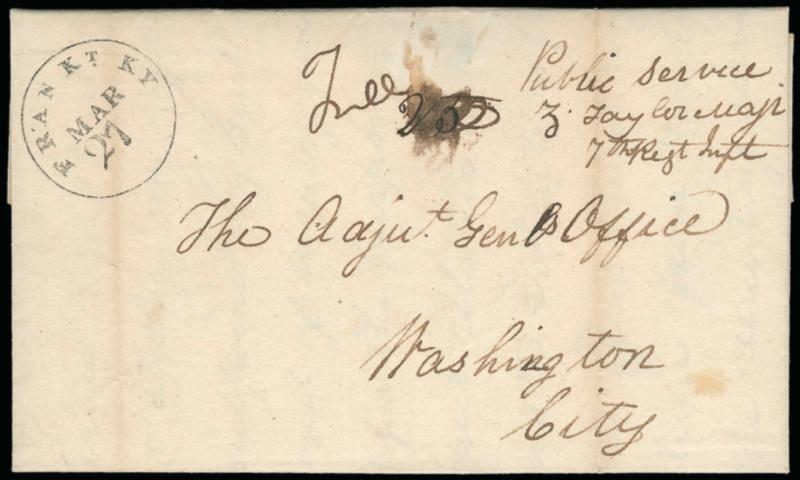 FRANKT. KY
MAR
27
Free
25
Public Service
Z. Taylor Maj.
7th Regt Inft
The Adjut. Genls Office
Washington
City